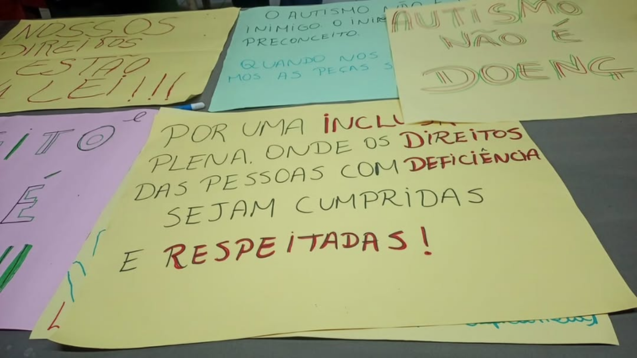 NOSSOS
DIREITOS
ESTÃO
LEI!!!!
O AUTISMO NÃO
INIMIGO O
PRECONCEITO.
QUANDO NOS
MOS AS PEÇAS
AUTISMO
NÃO É
DOENÇ
É
POR UMA INCLUSA
PLENA. ONDE OS DIREITOS
DAS PESSOAS COM DEFICIÊNCIA
SEJAM CUMPRIDAS
E RESPEITADAS!